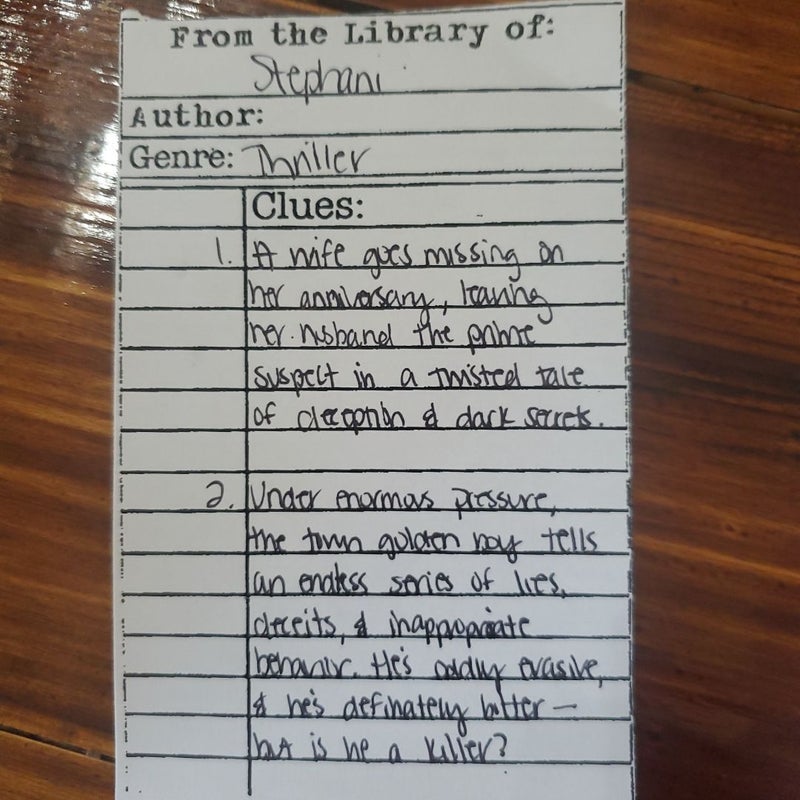 From the Library of:
Stephani
Author:
Genre: Thriller
Clues:
1. A wife goes missing on
her anniversary, leaving
her husband the prime
suspect in a twisted tale
of deception & dark secrets.
2. Under enormous pressure,
the town golden boy tells
an endless series of lies,
deceits, & inappropriate
behavior. He's oddly evasive,
& he's definately bitter —
but is he a killer?